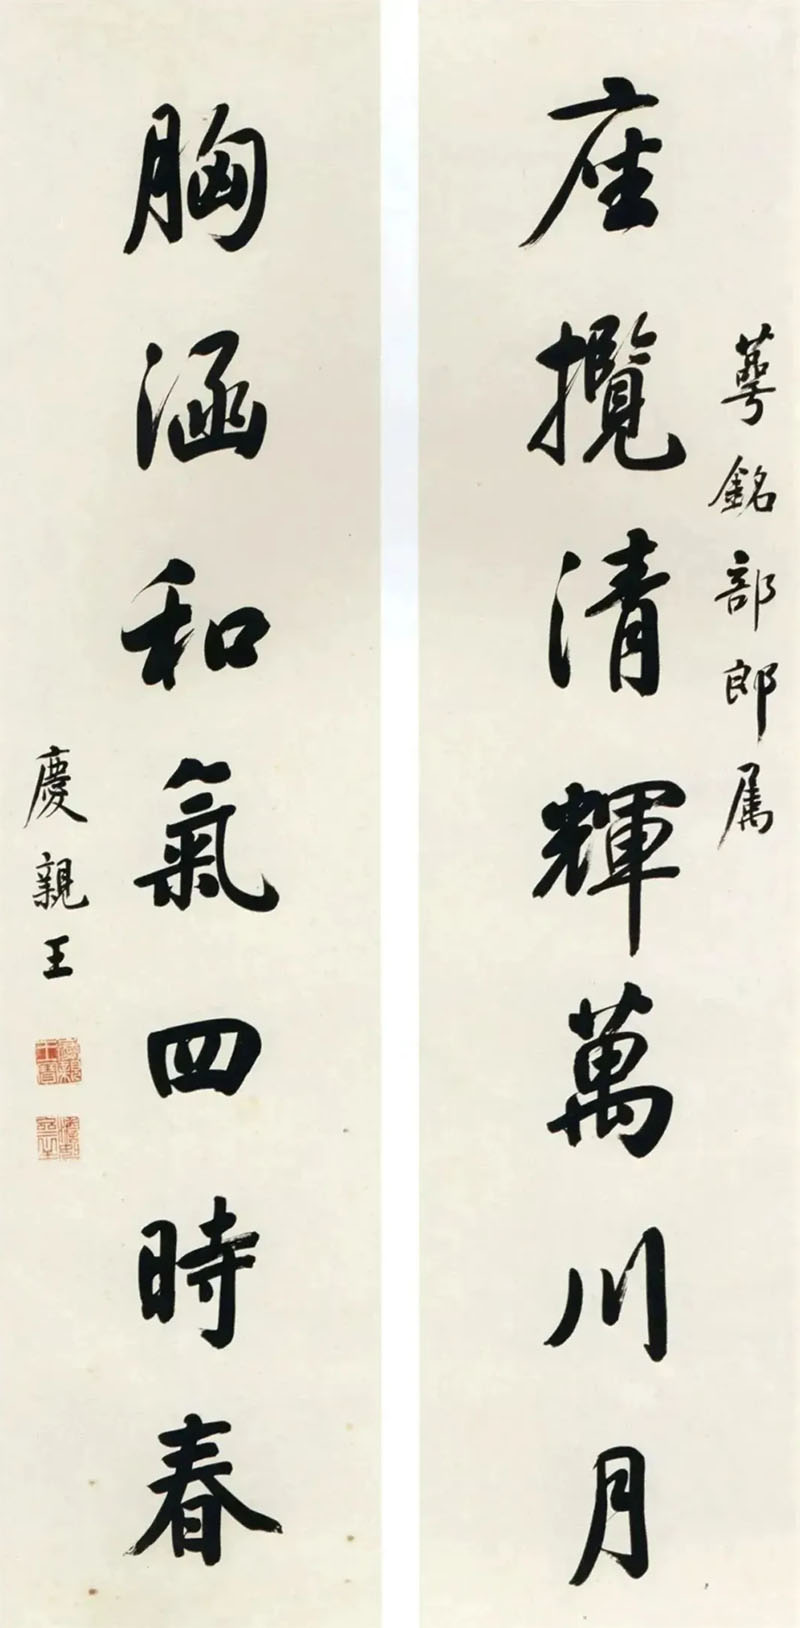 蕚銘部郎属
座攬清輝萬川月
胸涵和氣四時春
慶親王